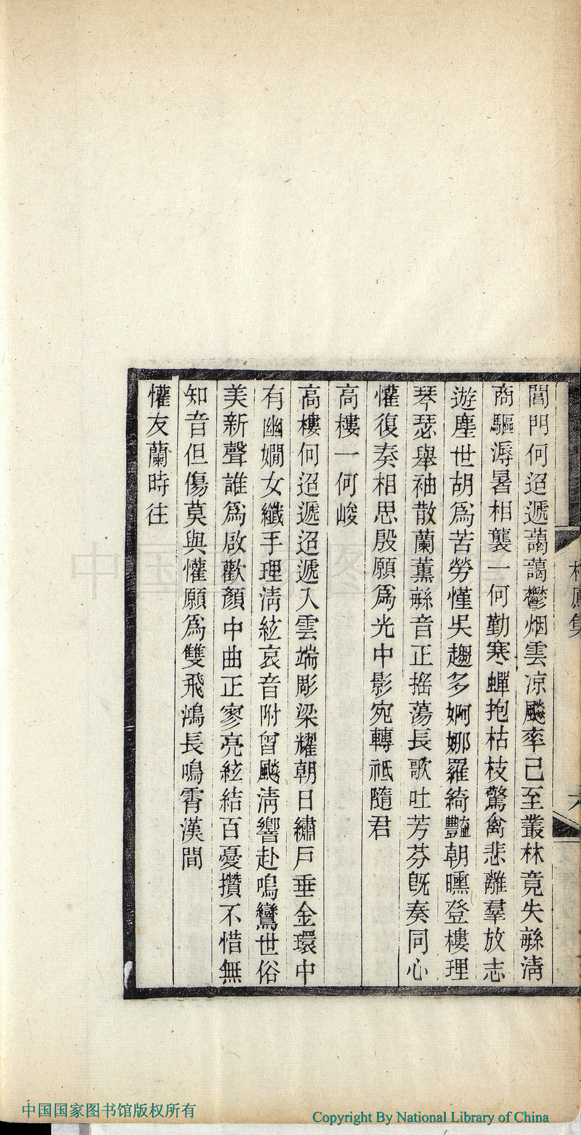 閶門何迢遞藹藹鬱烟雲凉飈率已至叢林竟失緜淸
商驅溽暑相襲一何勤寒蟬抱枯枝驚禽悲離羣放志
遊塵世胡爲苦勞慬吳趨多婀娜羅綺豔朝曛登樓理
琴瑟舉袖散蘭薰緜音正搖蕩長歌吐芳芬旣奏同心
懽復奏相思殷願爲光中影宛轉祗隨君
高樓一何峻
高樓何迢遞迢遞入雲端彫梁耀朝日繡戶垂金環中
有幽嫺女纖手理淸絃哀音附曾飈淸響赴鳴鸞世俗
美新聲誰爲啟歡顏中曲正寥亮絃結百憂攢不惜無
知音但傷莫與懽願爲雙飛鴻長鳴霄漢間
懽友蘭時往
中国国家图书馆版权所有
Copyright By National Library of China